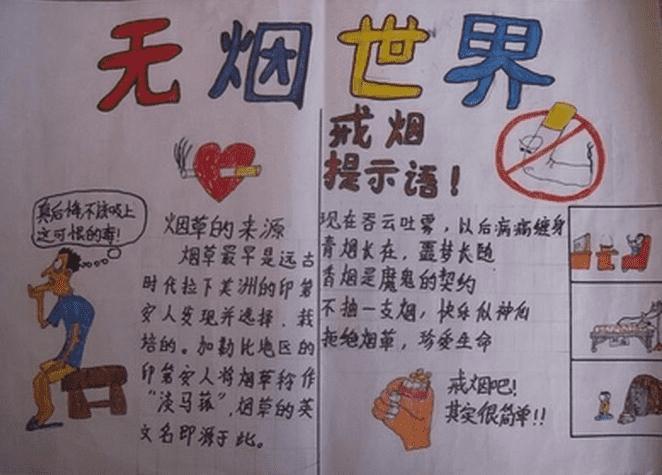 无烟世界
真后悔不该吸上
这可恨的毒！
烟草的来源
烟草最早是远古
时代拉丁美洲的印第
安人发现并选择，栽
培的。加勒比地区的
印第安人将烟草称作
“淡马菰”，烟草的英
文名即源于此。
戒烟
提示语！
现在吞云吐雾，以后病痛缠身
青烟长在，噩梦长随
香烟是魔鬼的契约
不抽一支烟，快乐似神仙
拒绝烟草，珍爱生命
戒烟吧！
其实很简单！！